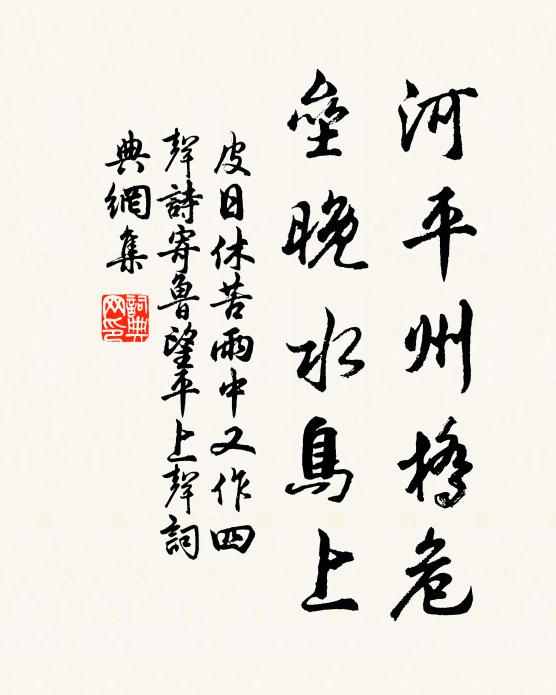 河平州橋危
垒晚水鳥上
皮日休苦雨中又作四
聲詩寄魯望平上聲詞
典網集
詞典
网印